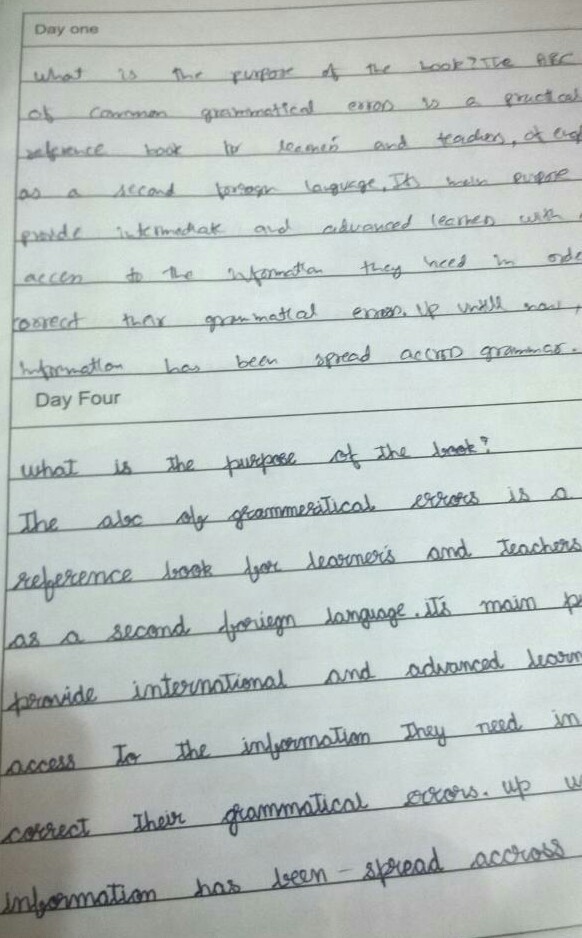 Day one
What is the purpose of the book? The ABC
of common grammatical errors is a practical
reference book for learners and teachers, of
as a second foreign language. Its main purpose
provide intermediate and advanced learners with
access to the information they need in orde
correct their grammatical errors. Up untill now,
information has been spread accross grammar.
Day Four
What is the purpose of the book?
The abc of grammeratical errors is a
reference book for learner's and Teachers
as a second foriegn language. its main p
provide international and advanced learn
access To the information They need in
correct Their grammatical errors. up u
information has been - spread accross